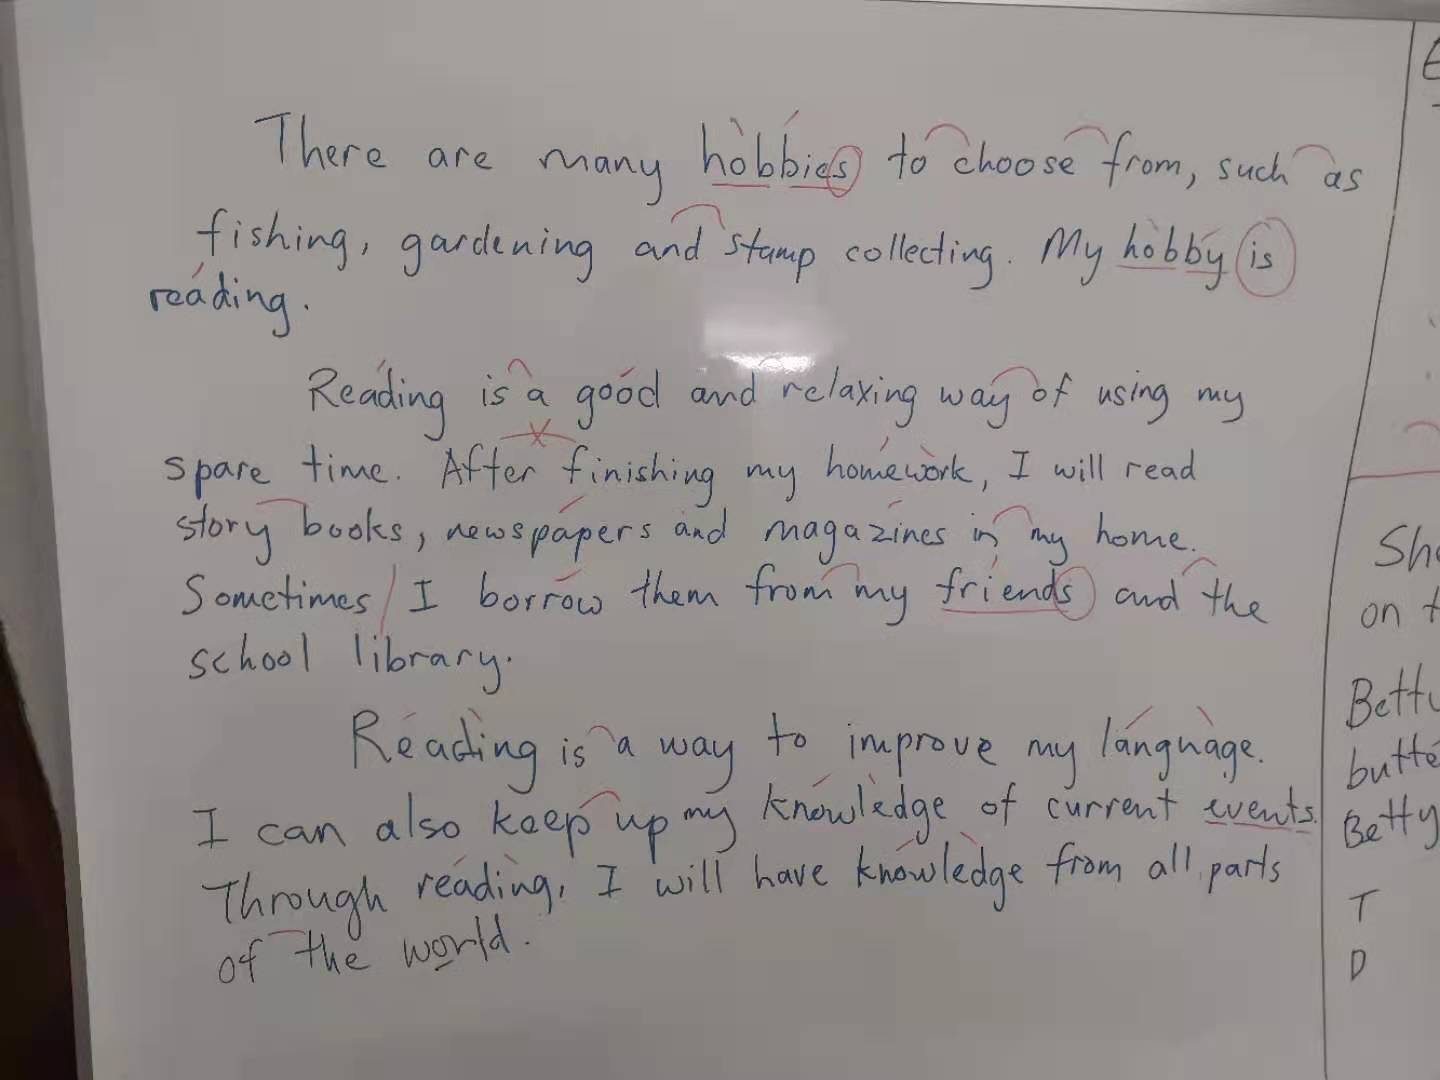 There are many hobbies to choose from, such as
fishing, gardening and stamp collecting. My hobby is
reading.
Reading is a good and relaxing way of using my
spare time. After finishing my homework, I will read
story books, newspapers and magazines in my home.
Sometimes I borrow them from my friends and the
school library.
Reading is a way to improve my language.
I can also keep up my knowledge of current events.
Through reading, I will have knowledge from all parts
of the world.
on
Betty
Betty
T
D